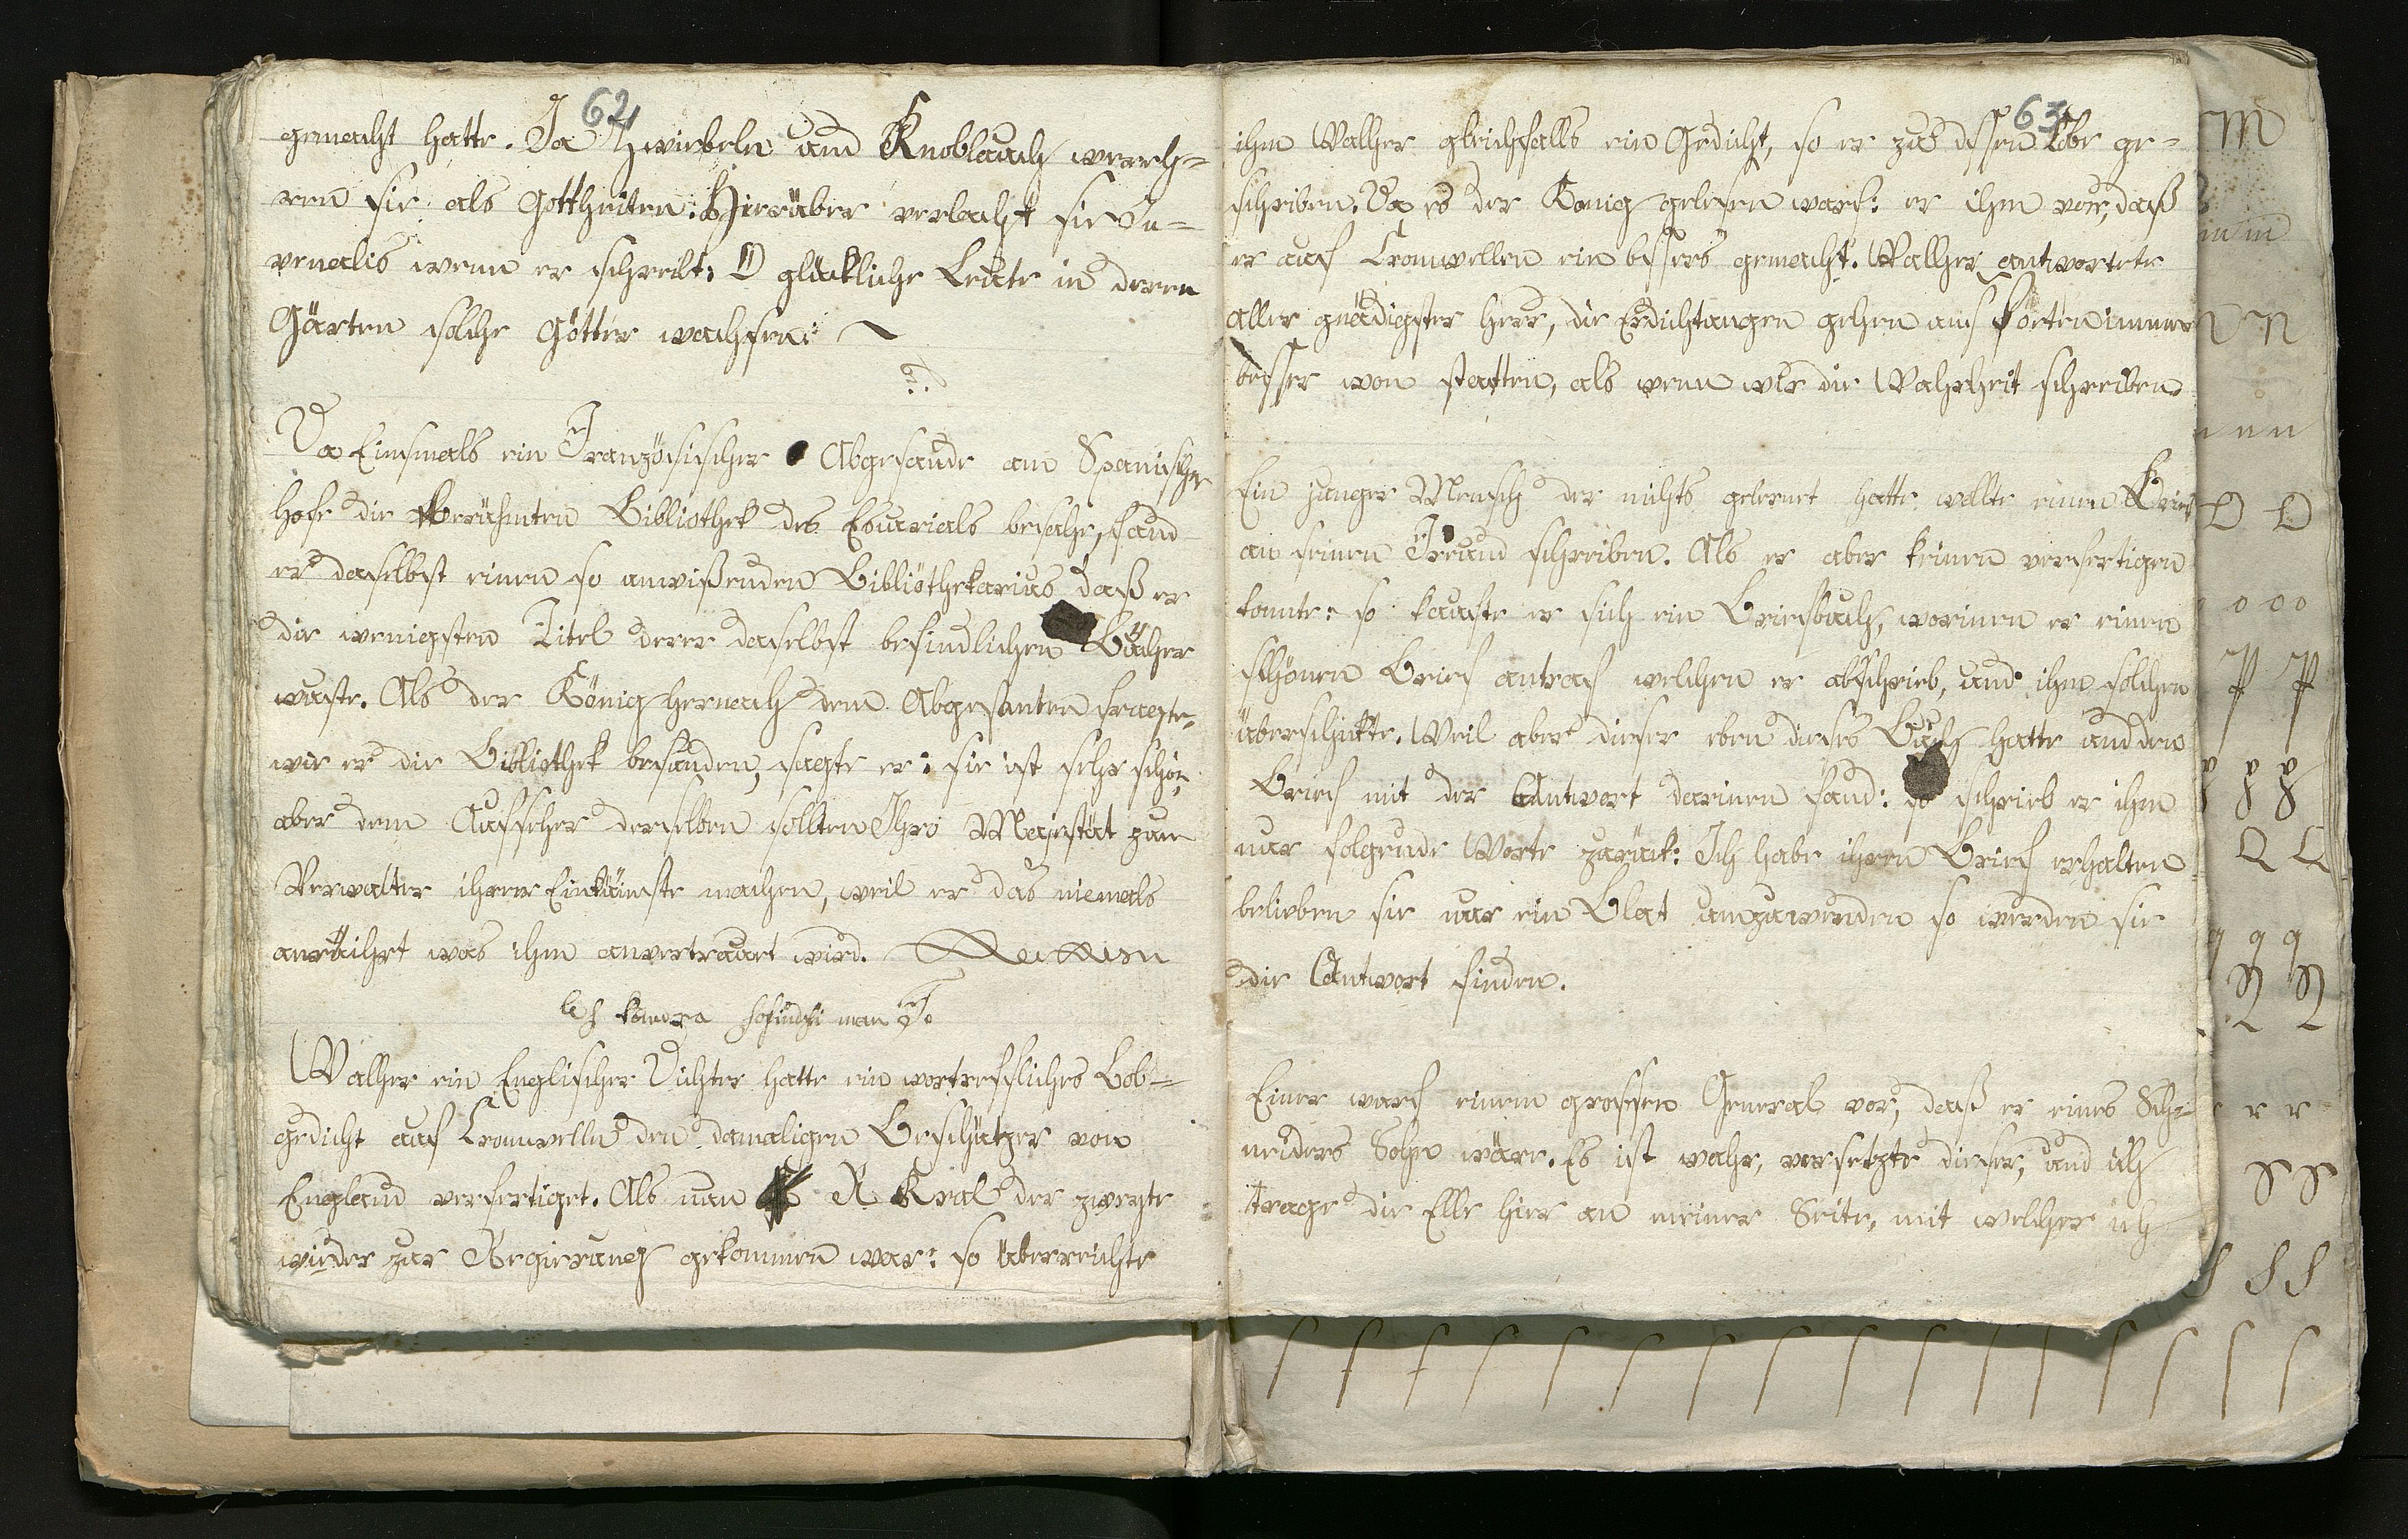 62
gemacht hatte. Ja Zwiebeln und Knoblauch vereh=
ren sie als Gottheiten. Hierüber verlacht sie Ju=
venalis wenn er schreibt: O glückliche Leute in deren
Gärten solche Götter wachsen:
Da Einsmals ein Französischer Abgesande am Spanischen
Hofe die berühmten Bibliothek des Escurials besahe, fand
er daselbst einen so unwißenden Bibliöthekarius daß er
die wenigsten Titel derer daselbst befindlichen Bücher
wuste. Als der König hernach dem Abgesanten fragte,
wie er die Bibliothek befunden, sagte er: sie ist sehr schön,
aber dem Aufseher derselben sollten Ihro Majestät zum
Verwalter ihrer Einkümfte machen, weil er das niemals
anrüihrt was ihm anvertrauet wird.
man
Wallher ein Englischer Dichter hatte ein vortreffliches Lob=
gedicht auf Cromwelln den damaligen Beschützer von
England verfertiget. Als nun K Kral der zweyte
wieder zur Regierung gekommen war: so überreichte
63
ihm Wallher gleichfalls ein Gedicht, so er zu dessen Lobe ge=
schrieben. Da es der König gelesen warf: er ihm vor, daß
er auf Cromwellen ein bessers gemacht. Wallher antwortete
aller gnädigster Herr, die Erdichtungen gehen uns Poeten immer
besser von statten, als wenn wir die Wahrheit schreiben
Ein junger Mensch der nichts gelernet hatte wollte einen Brief
an seinen Freund schreiben. Als er aber keinen verfertigen
konnte: so kaufte er sich ein Briefbuch, worinnen er einen
schönen Brief antraf welchen er abschrieb, und ihm solchen
überschickte. Weil aber dieser eben dieses Buch hatte und den
Brief mit der Antwort darinnen fand: so schrieb er ihm
nur folgende Worte zurück: Ich habe ihren Brief erhalten
belieben sie nur ein Blat umzuwenden so werden sie
die Antwort finden.
Einer warf einem grossen General vor, daß er eines Sch=
neiders Sohn wäre. Es ist wahr, versetzte dieser, und ich
trage die Elle hier an meiner Seite, mit welcher ich